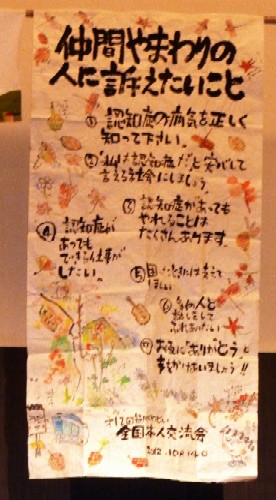 仲間やまわりの
人に訴えたいこと
① 認知症の病気を正しく
知って下さい。
② 私は認知症だと安心して
言える社会にしましょう。
③ 認知症があっても
やれることは
たくさんあります。
④ 認知症が
あっても
できる仕事が
したい。
⑤ 困ったときには支えて
ほしい
⑥ 多くの人と
話しをして
ふれあいたい
⑦ お互いに「ありがとう」と
声をかけあいましょう!!
全国本人交流会